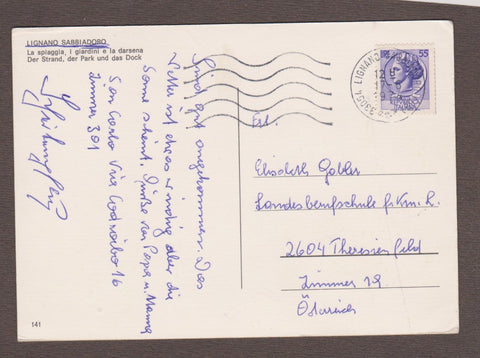 LIGNANO SABBIADORO
La spiaggia, i giardini e la darsena
Der Strand, der Park und das Dock
Sind gut angekommen. Das
Wetter ist etwas windig aber die
Sonne scheint. Grüße von Papa u. Mama
San Carlo Via Codroibo 16
Zimmer 301
141
55
33054 LIGNANO
Frl.
Elisabeth
Landesberufschule f. Km. K.
2604 Theresienfeld
Zimmer 19
Österreich